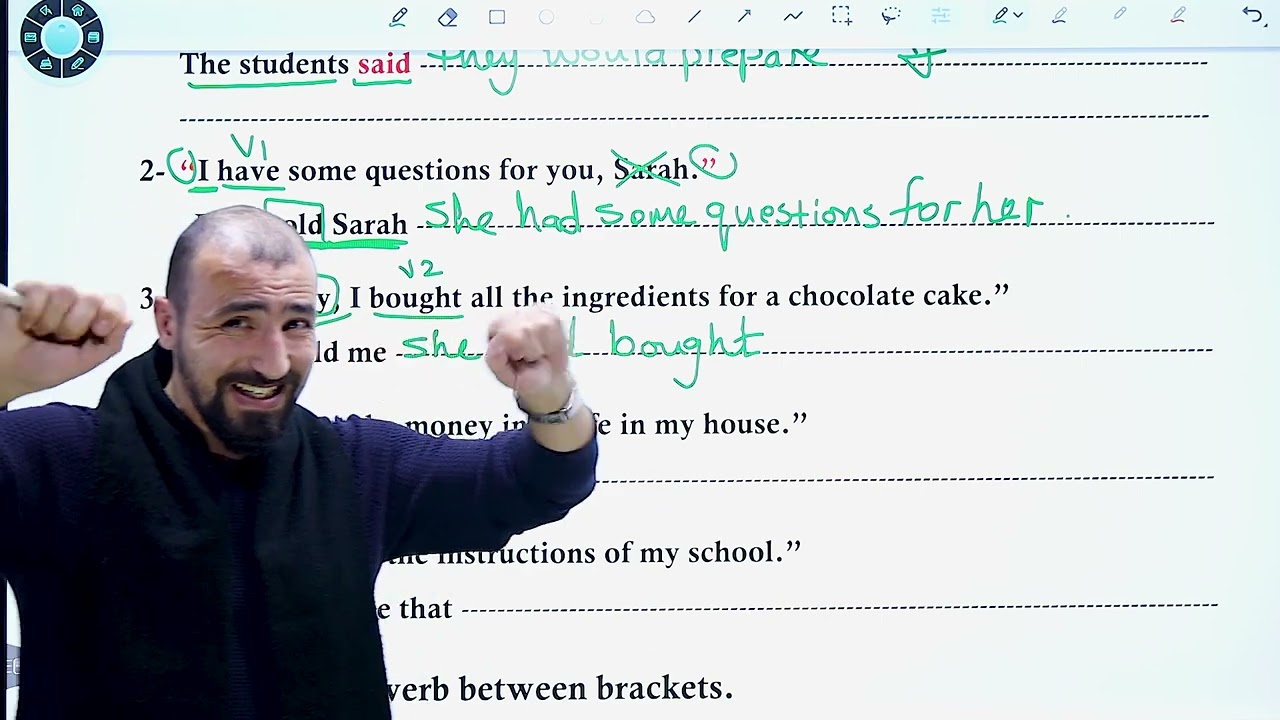 The students said they would prepare it
V1
2- “I have some questions for you, Sarah.”
old Sarah she had some questions for her.
V2
3 y, I bought all the ingredients for a chocolate cake.”
ld me she bought
money in fe in my house.”
the instructions of my school.”
e that
verb between brackets.